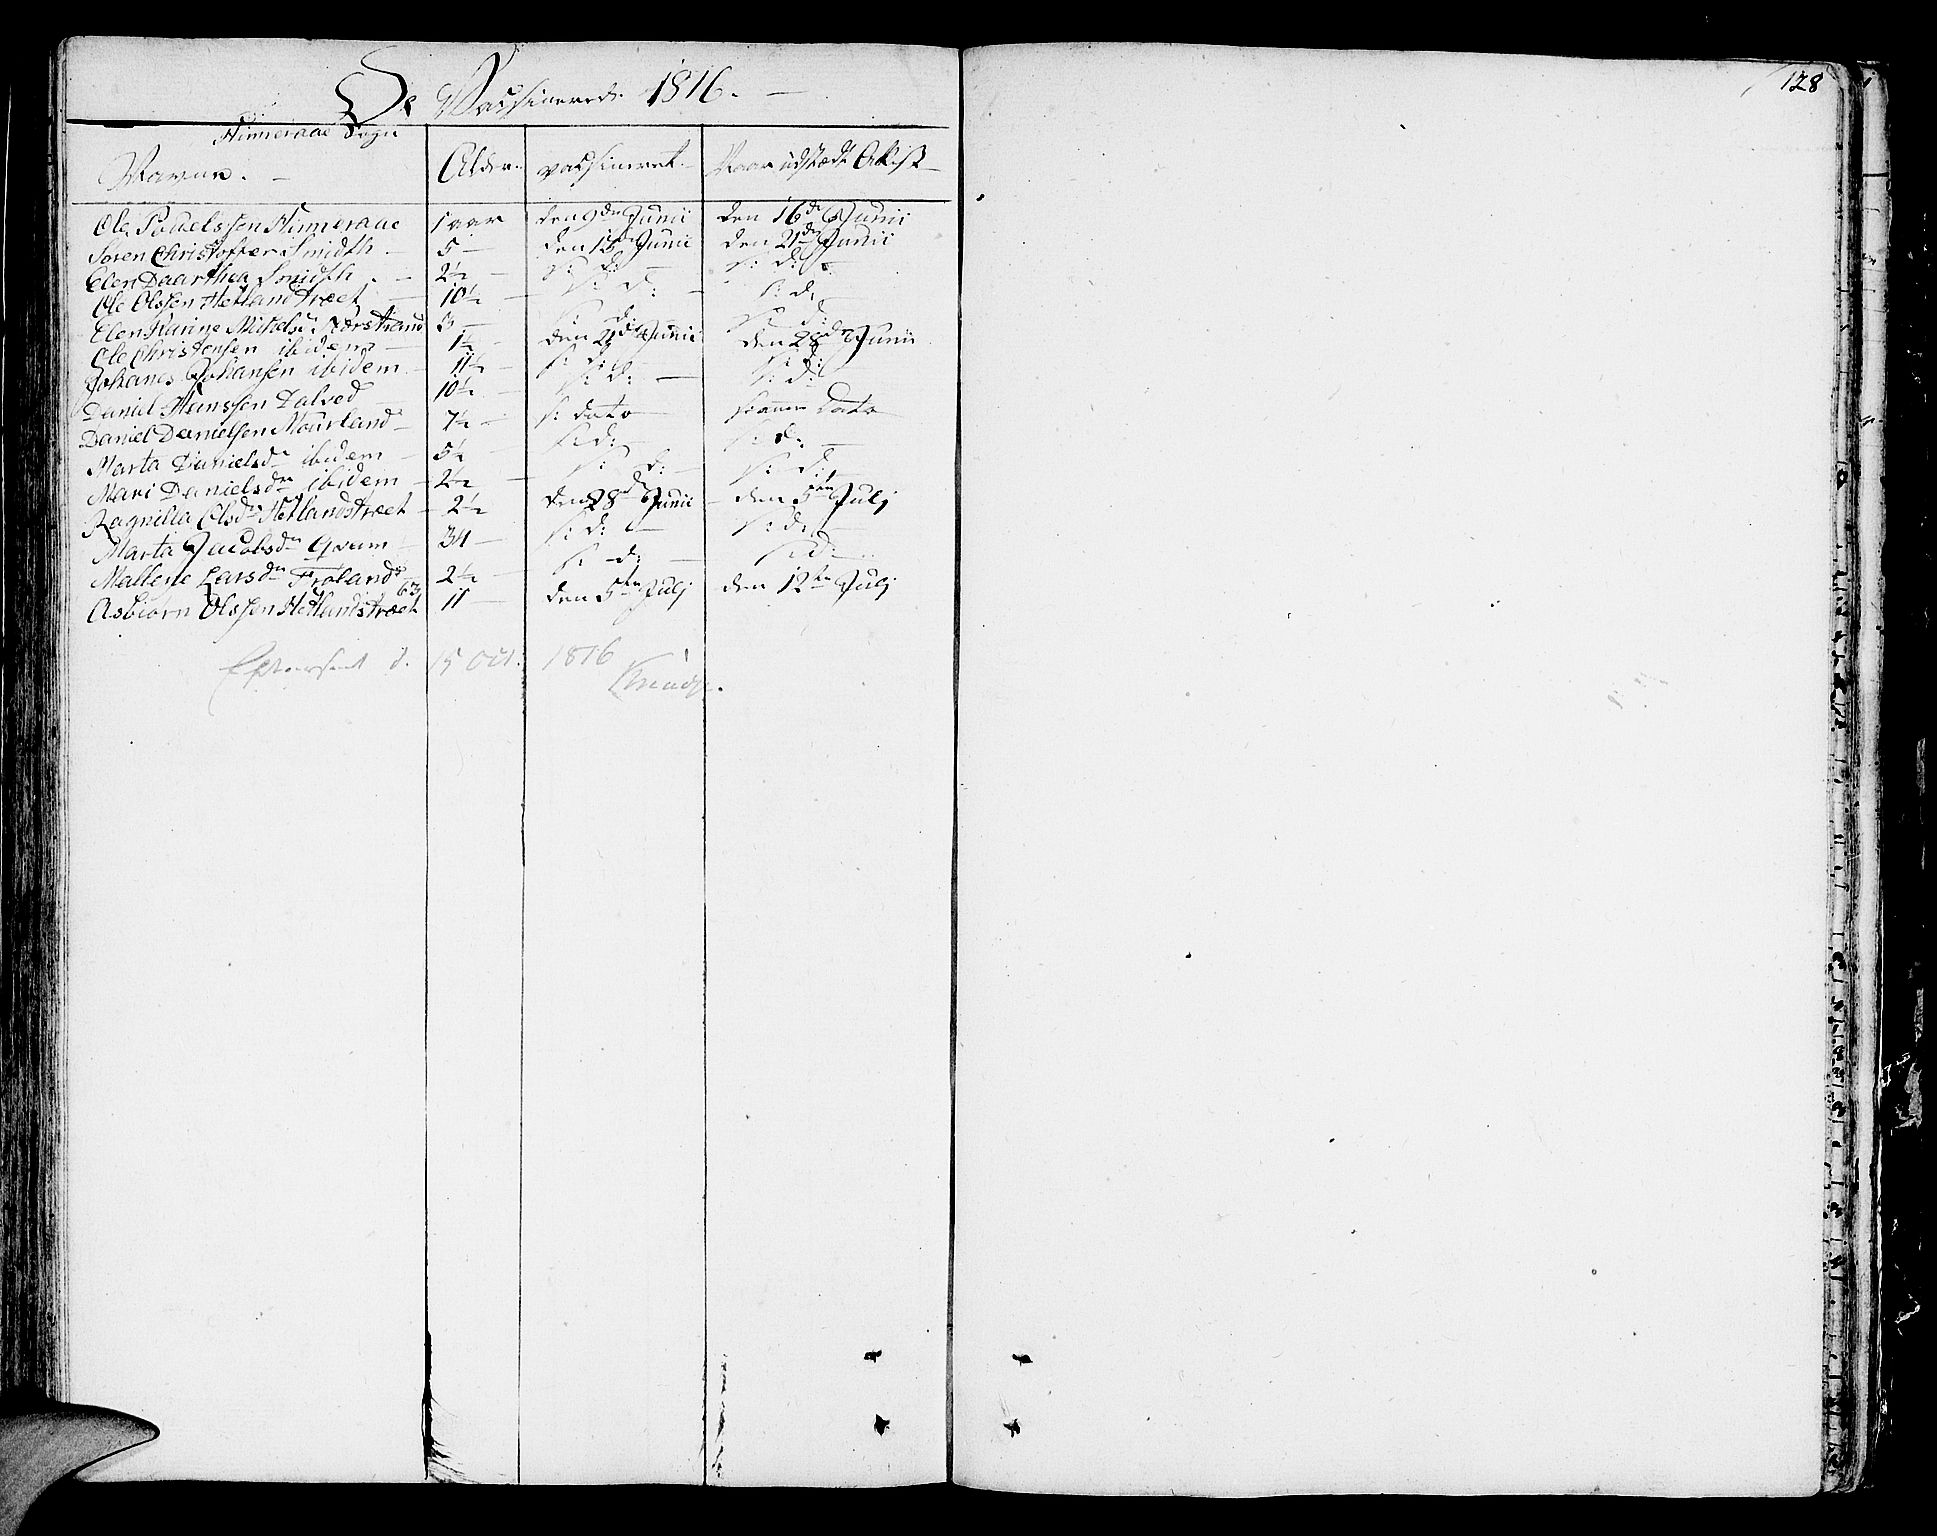 128
De Vacsinerede 1816. —
Hinneraae Sogn
Navne. — Alder. vacsineret. Naar udstædt Attest
Ole Pouelssen Hinneraae 1 aar den 9de Junii den 16de Junii
Søren Christoffer Smidth — 5 — den 15de Junii den 21de Junii
Elen Daarthea Smidth — 2½ — s: d: — s: d: —
Ole Olssen Hetlandstræet — 10½ — s: d: — s: d:
Elen Karine Mikelsdr Nærstrand 3 — s: d: s: d:
Ole Christensen ibidem — 1½ — den 21de Junii den 28de Junii
Johanes Johansen ibidem — 11½ — s: d: s: d:
Daniel Hanssen Dalved — 10½ — s: d: — s: d:
Daniel Danielsen Mourland — 7½ — s: dato samme Dato
Marta Danielsdr ibidem — 5½ — s: d: — s: d: —
Mari Danielsdr ibidem — 2½ — s: d: — s: d:
Ragnilla Olsdr Hetlandstræet — 2½ — den 28de Junii — den 5te Julj
Marta Jacobsdr Qvam — 34 — s: d: — s: d:
Mallene Larsdr Frøland 2½ — s: d: — s: d:
63
Asbiørn Olssen Hetlandstræet 11 — den 5te Julj den 12te Julj
Efterseet d. 15 Oct: 1816